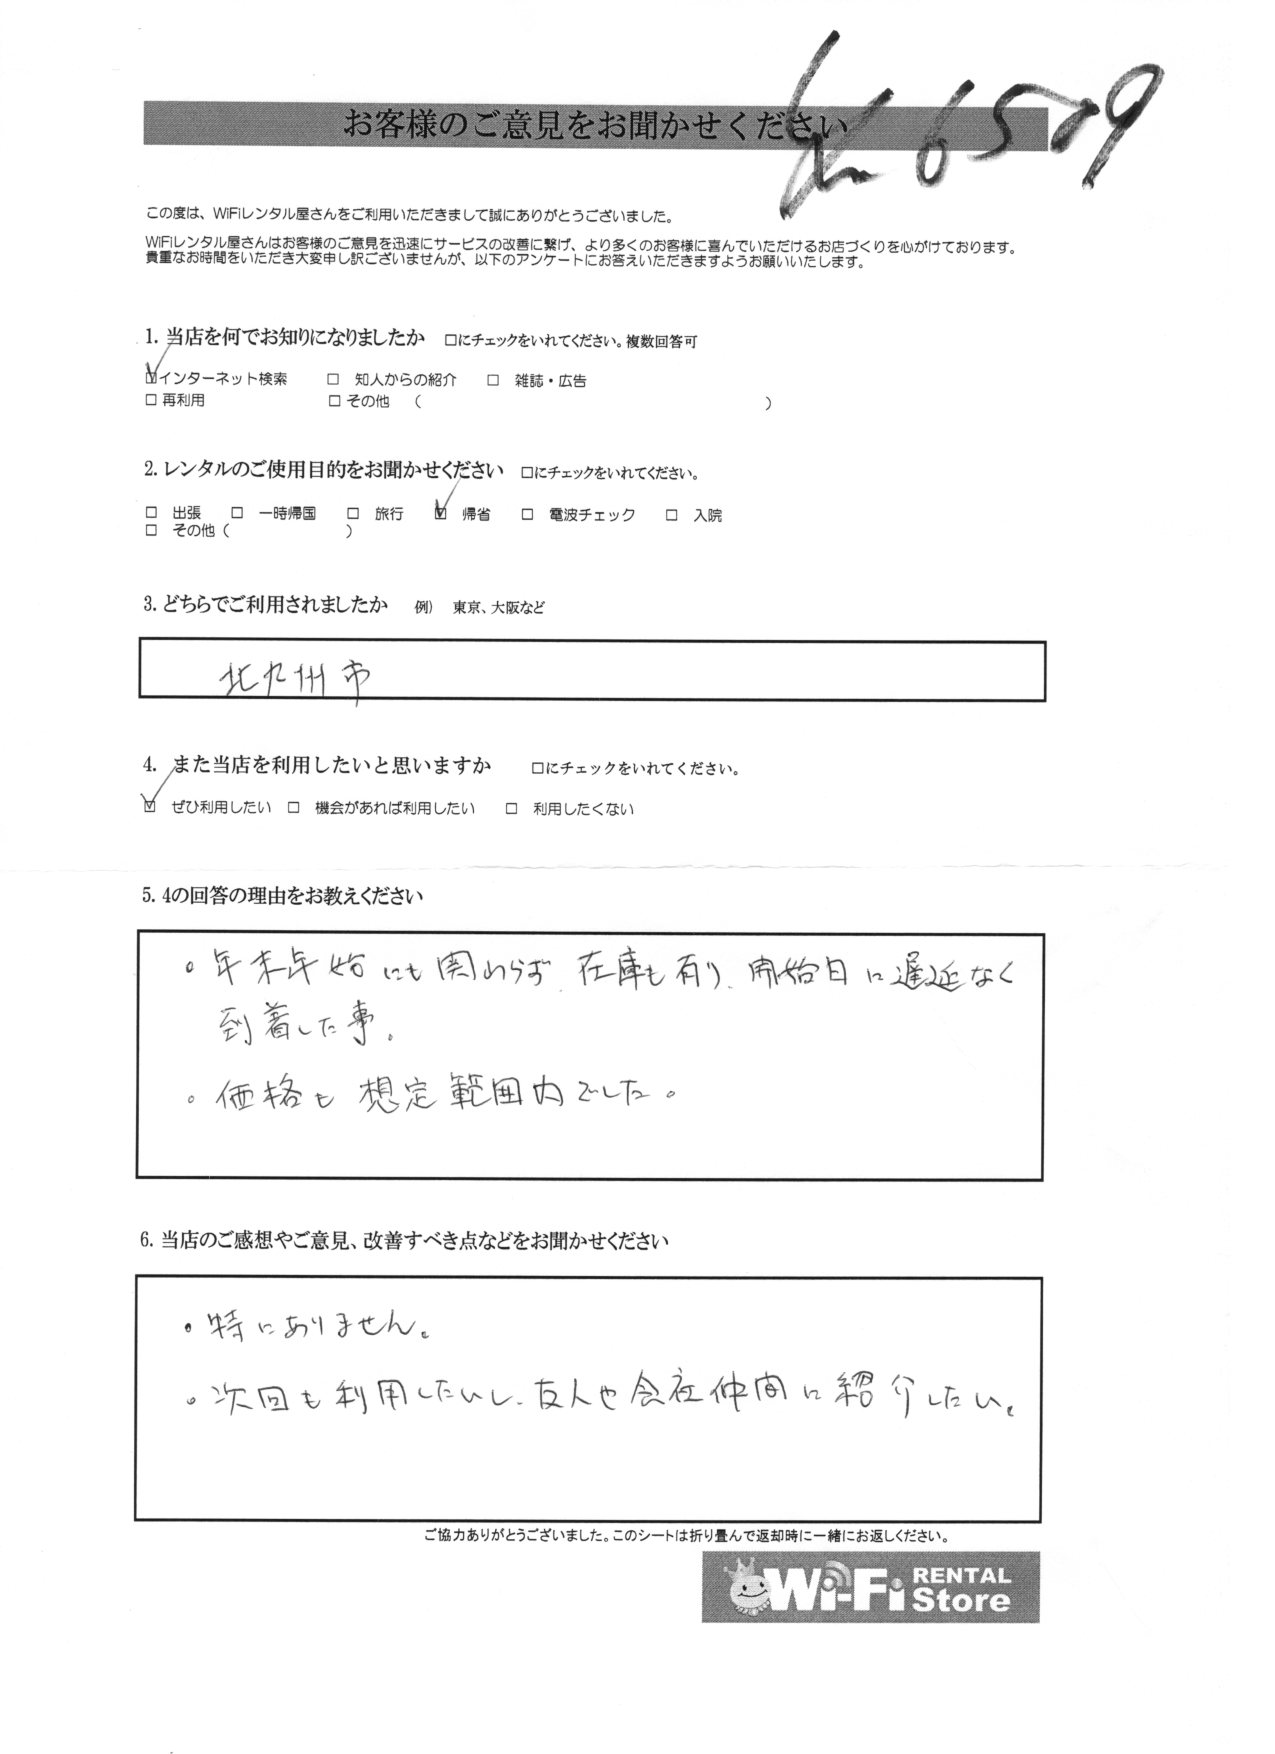 お客様のご意見をお聞かせください
6509
この度は、WiFiレンタル屋さんをご利用いただきまして誠にありがとうございました。
WiFiレンタル屋さんはお客様のご意見を迅速にサービスの改善に繋げ、より多くのお客様に喜んでいただけるお店づくりを心がけております。
貴重なお時間をいただき大変申し訳ございませんが、以下のアンケートにお答えいただきますようお願いいたします。
1. 当店を何でお知りになりましたか □にチェックをいれてください。複数回答可
☑インターネット検索 □ 知人からの紹介 □ 雑誌・広告
□ 再利用 □ その他 ( )
2. レンタルのご使用目的をお聞かせください □にチェックをいれてください。
□ 出張 □ 一時帰国 □ 旅行 ☑ 帰省 □ 電波チェック □ 入院
□ その他 ( )
3. どちらでご利用されましたか 例) 東京、大阪など
北九州市
4. また当店を利用したいと思いますか □にチェックをいれてください。
☑ ぜひ利用したい □ 機会があれば利用したい □ 利用したくない
5. 4の回答の理由をお教えください
。年末年始にも関わらず、在庫も有り、開始日に遅延なく
到着した事。
。価格も想定範囲内でした。
6. 当店のご感想やご意見、改善すべき点などをお聞かせください
・特にありません。
。次回も利用したいし、友人や会社仲間に紹介したい。
ご協力ありがとうございました。このシートは折り畳んで返却時に一緒にお返しください。
Wi-Fi RENTAL Store